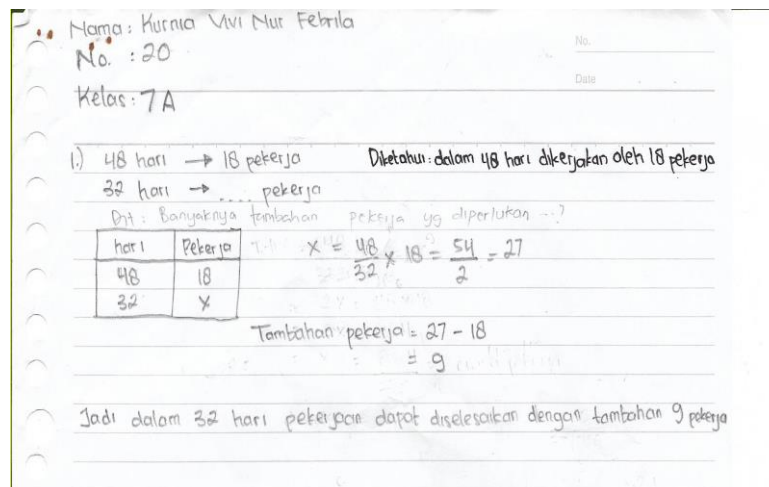 Nama : Kurnia Vivi Nur Febrila
No. : 20
Kelas : 7A
No.
Date
1.) 48 hari → 18 pekerja Diketahui : dalam 48 hari dikerjakan oleh 18 pekerja
32 hari → .... pekerja
Dit : Banyaknya tambahan pekerja yg diperlukan ...?
hari Pekerja
48 18
32 x
x = 48/32 x 18 = 54/2 = 27
Tambahan pekerja = 27 - 18
= 9
Jadi dalam 32 hari pekerjaan dapat diselesaikan dengan tambahan 9 pekerja